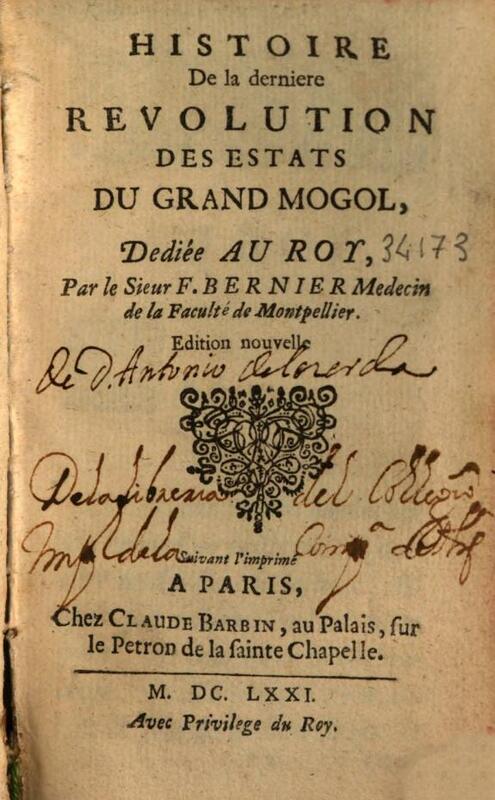 HISTOIRE
De la derniere
REVOLUTION
DES ESTATS
DU GRAND MOGOL,
Dediée AU ROY, 34173
Par le Sieur F. BERNIER Medecin
de la Faculté de Montpellier.
Edition nouvelle
de D. Antonio delacerda
De la libreria del Collegio
Impl de la Comp.ª de
Suivant l'imprimé
A PARIS,
Chez CLAUDE BARBIN, au Palais, ſur
le Petron de la ſainte Chapelle.
M. DC. LXXI.
Avec Privilege du Roy.